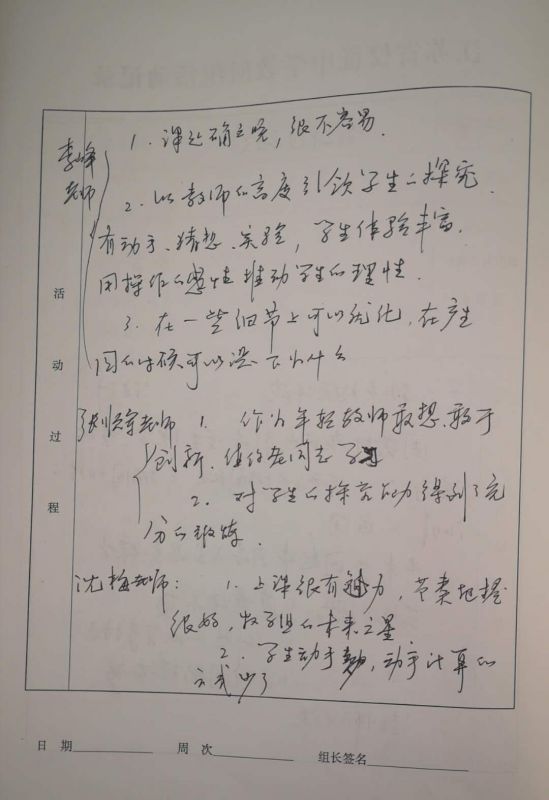 李峰老师
1. 课题确立完，很不容易.
2. 以教师的高度引领学生的探究.
有动手、猜想、实验，学生体验丰富.
用操作的感性推动学生的理性.
3. 在一些细节上可以优化，在产生
可以 一下为什么
老师 1. 作为年轻教师敢想、敢于
创新. 值得老同志学习
2. 对学生的探究能力得到了充
分的锻炼.
沈梅老师： 1. 上课很有魅力，节奏把握
很好，数学组的未来之星
2. 学生动手 ，动手计算的
方式少了
活动过程
日 期 周 次 组长签名